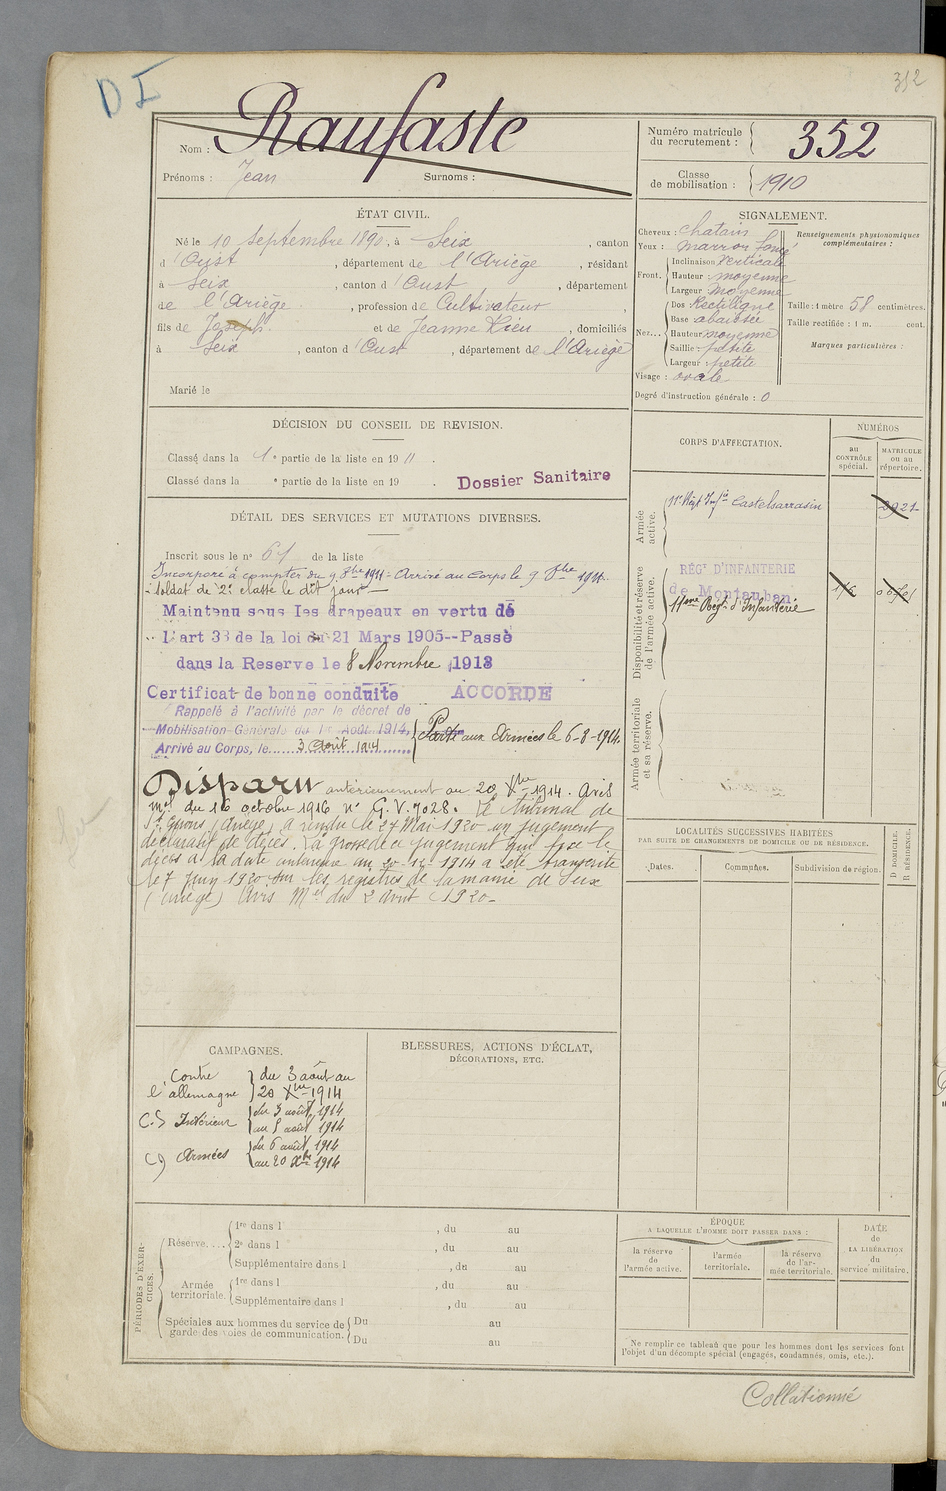 D I
352
Nom : Raufaste
Prénoms : Jean Surnoms :
Numéro matricule du recrutement : 352
Classe de mobilisation : 1910
ÉTAT CIVIL.
Né le 10 Septembre 1890, à Seix, canton
d'Oust, département de l'Ariège, résidant
à Seix, canton d'Oust, département
de l'Ariège, profession de Cultivateur,
fils de Joseph et de Jeanne Rieu, domiciliés
à Seix, canton d'Oust, département de l'Ariège
Marié le
SIGNALEMENT.
Cheveux : chatain
Yeux : marron foncé
Front. Inclinaison Verticale
Hauteur : moyenne
Largeur moyenne
Nez... Dos Rectiligne
Base abaissée
Hauteur moyenne
Saillie : petite
Largeur petite
Visage : ovale
Degré d'instruction générale : 0
Renseignements physionomiques complémentaires :
Taille : 1 mètre 58 centimètres.
Taille rectifiée : 1 m. cent.
Marques particulières :
DÉCISION DU CONSEIL DE REVISION.
Classé dans la 1e partie de la liste en 1911.
Classé dans la e partie de la liste en 19 .
Dossier Sanitaire
DÉTAIL DES SERVICES ET MUTATIONS DIVERSES.
Inscrit sous le n° 61 de la liste
Incorporé à compter du 9 8bre 1911 = Arrivé au Corps le 9 8bre 1911.
= Soldat de 2e classe le dit jour —
Maintenu sous les drapeaux en vertu de
L'art 33 de la loi du 21 Mars 1905--Passé
dans la Reserve le 8 Novembre 1913
Certificat de bonne conduite ACCORDÉ
Rappelé à l'activité par le décret de
Mobilisation Générale du 1er Août 1914,
Arrivé au Corps, le 3 Août 1914
Parti aux Armées le 6-8-1914.
Disparu antérieurement au 20 Xbre 1914. Avis
mel du 16 octobre 1916 n° G.V. 7028. Le Tribunal de
St Girons (Ariège) a rendu le 27 Mai 1920 un jugement
déclaratif de décès. La grosse de ce jugement qui fixe le
décès à la date antérieure au 20-12-1914 a été transcrite
le 7 Juin 1920 sur les registres de la mairie de Seix
(Ariège) Avis Mel du 2 Août 1920-
CORPS D'AFFECTATION.
NUMÉROS
au CONTRÔLE spécial.
MATRICULE ou au répertoire.
Armée active.
11e Régt Infie Castelsarrasin 2921
Disponibilité et réserve de l'armée active.
RÉGt D'INFANTERIE
de Montauban
11ème Régt d'Infanterie
Armée territoriale et sa réserve.
LOCALITÉS SUCCESSIVES HABITÉES
PAR SUITE DE CHANGEMENTS DE DOMICILE OU DE RÉSIDENCE.
Dates. Communes. Subdivision de région.
D DOMICILE.
R RÉSIDENCE.
CAMPAGNES.
Contre l'allemagne du 3 août au 20 Xbre 1914
C.S Intérieur du 3 août 1914
au 5 août 1914
C) Armées du 6 août 1914
au 20 Xbre 1914
BLESSURES, ACTIONS D'ÉCLAT,
DÉCORATIONS, ETC.
PÉRIODES D'EXERCICES.
Réserve.... 1re dans l , du au
2e dans l , du au
Supplémentaire dans l , du au
Armée territoriale. 1re dans l , du au
Supplémentaire dans l , du au
Spéciales aux hommes du service de garde des voies de communication. Du au
Du au
ÉPOQUE
A LAQUELLE L'HOMME DOIT PASSER DANS :
la réserve de l'armée active.
l'armée territoriale.
la réserve de l'armée territoriale.
DATE de LA LIBÉRATION du service militaire.
Ne remplir ce tableau que pour les hommes dont les services font
l'objet d'un décompte spécial (engagés, condamnés, omis, etc.).
Collationné